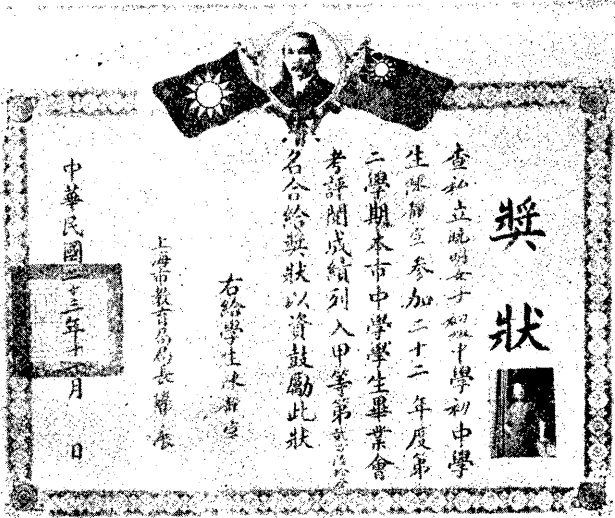 獎狀
查私立曉明女子初級中學初中學
生陳靜宜參加二十二年度第
二學期本市中學學生畢業會
考評閱成績列入甲等第
名合給獎狀以資鼓勵此狀
右給學生陳靜宜
上海市教育局局長
中華民國二十三年十月 日